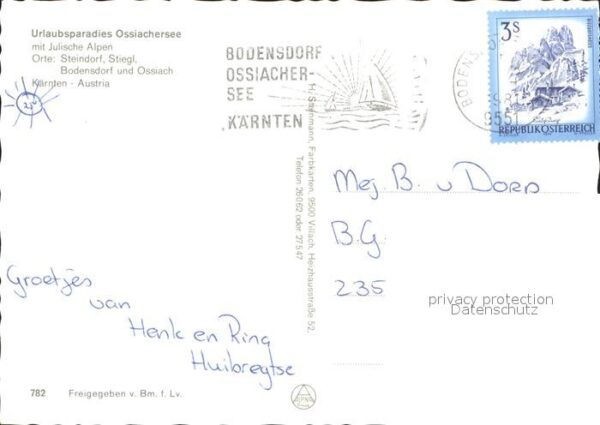 Urlaubsparadies Ossiachersee
mit Julische Alpen
Orte: Steindorf, Stiegl,
Bodensdorf und Ossiach
Kärnten - Austria
BODENSDORF
OSSIACHER-
SEE
KÄRNTEN
BODENSD
9551
3S
REPUBLIK ÖSTERREICH
H. Steinmann, Farbkarten, 9500 Villach, Herzhausstraße 52,
Telefon 26062 oder 27547
Mej B. v Dorp
B.G.
235
privacy protection
Datenschutz
Groetjes
van
Henk en Ring
Huibregtse
782 Freigegeben v. Bm. f. Lv.